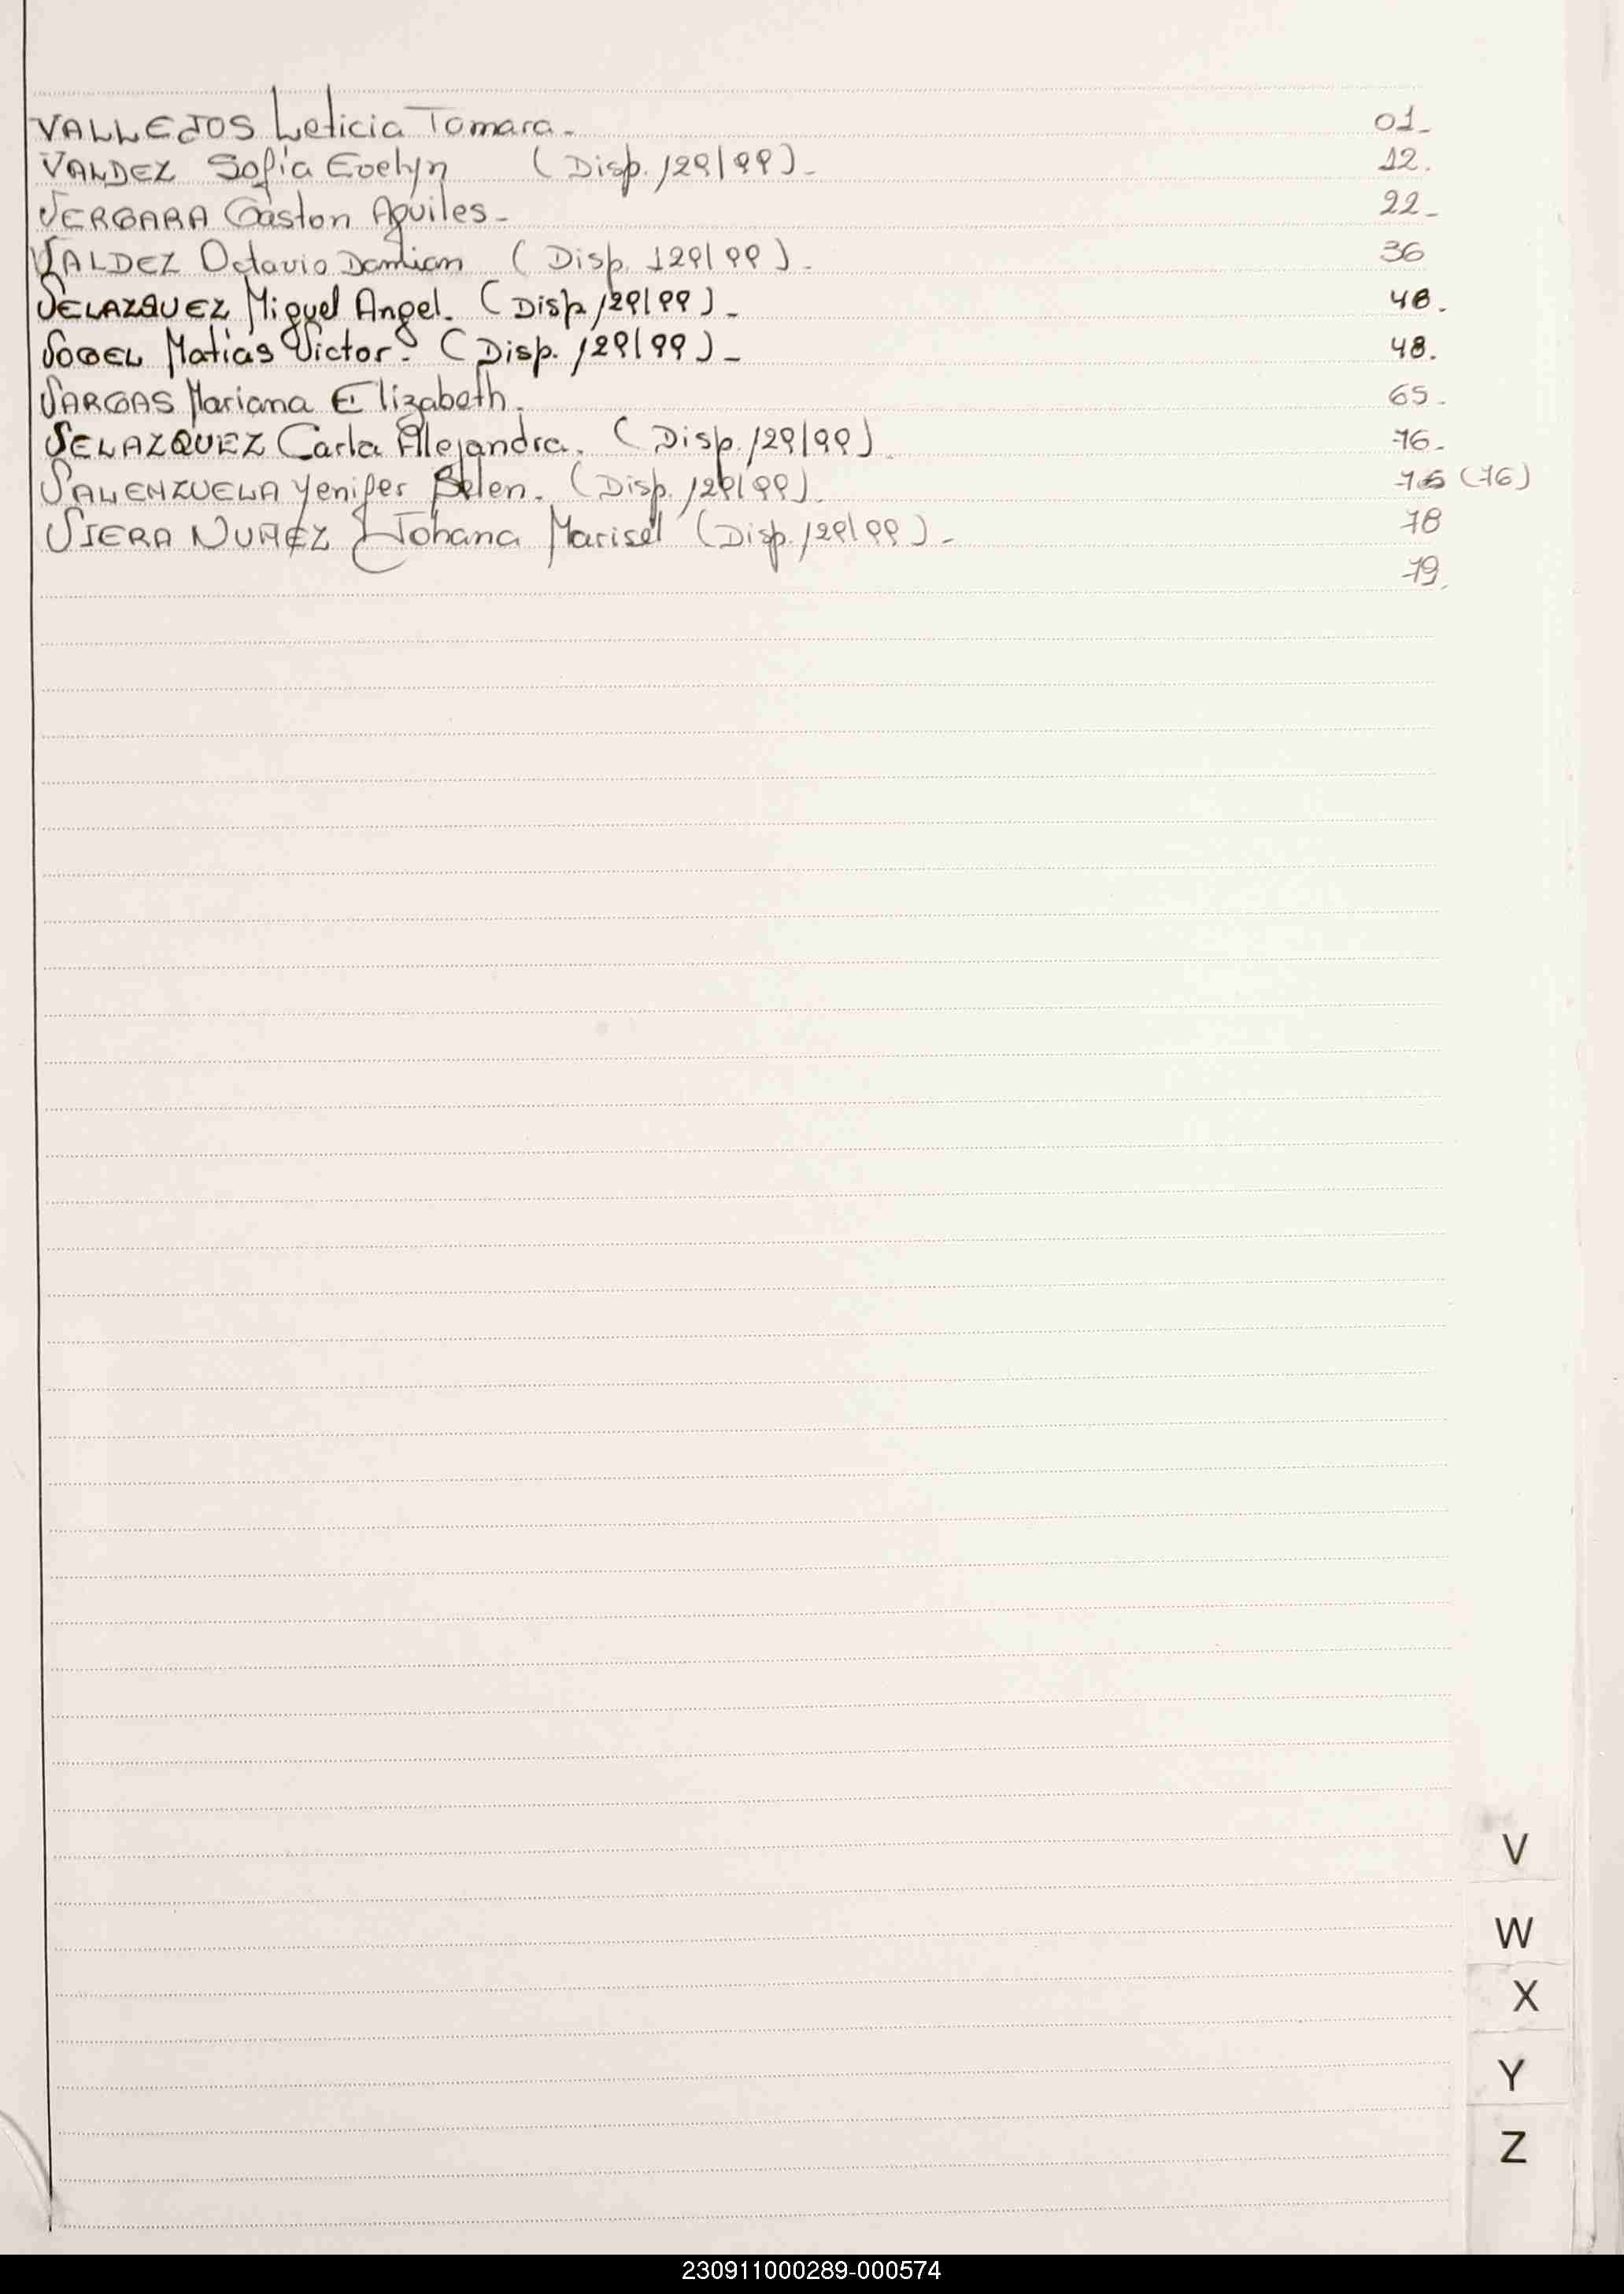 VALLEJOS Leticia Tamara. 01.
VALDEZ Sofía Evelyn (Disp. 129/99). 12.
VERGARA Gaston Aquiles. 22.
VALDEZ Octavio Damian (Disp. 129/99). 36
VELAZQUEZ Miguel Angel. (Disp. 129/99). 48.
VOGEL Matias Victor. (Disp. 129/99). 48.
VARGAS Mariana Elizabeth. 65.
VELAZQUEZ Carla Alejandra. (Disp. 129/99). 76.
VALENZUELA Yenifer Belen. (Disp. 129/99). (76)
VIERA NUÑEZ Johana Marisel (Disp. 129/99). 78
79.
V
W
X
Y
Z
230911000289-000574